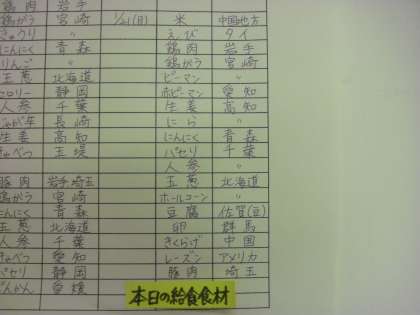 鶏肉 岩手
鶏がら 宮崎 1/21(月) 米 中国地方
きゅうり 〃 えび タイ
にんにく 青森 鶏肉 岩手
りんご 〃 鶏がら 宮崎
玉葱 北海道 ピーマン 〃
セロリー 静岡 赤ピーマン 愛知
人参 千葉 生姜 高知
じゃが芋 長崎 にら 〃
生姜 高知 にんにく 青森
きゃべつ 愛知 パセリ 千葉
人参 〃
豚肉 岩手埼玉 玉葱 北海道
鶏がら 宮崎 ホールコーン 〃
にんにく 青森 豆腐 佐賀(豆)
玉葱 北海道 卵 群馬
人参 千葉 きくらげ 中国
きゃべつ 愛知 レーズン アメリカ
パセリ 静岡 豚肉 埼玉
ぽんかん 愛媛
本日の給食食材